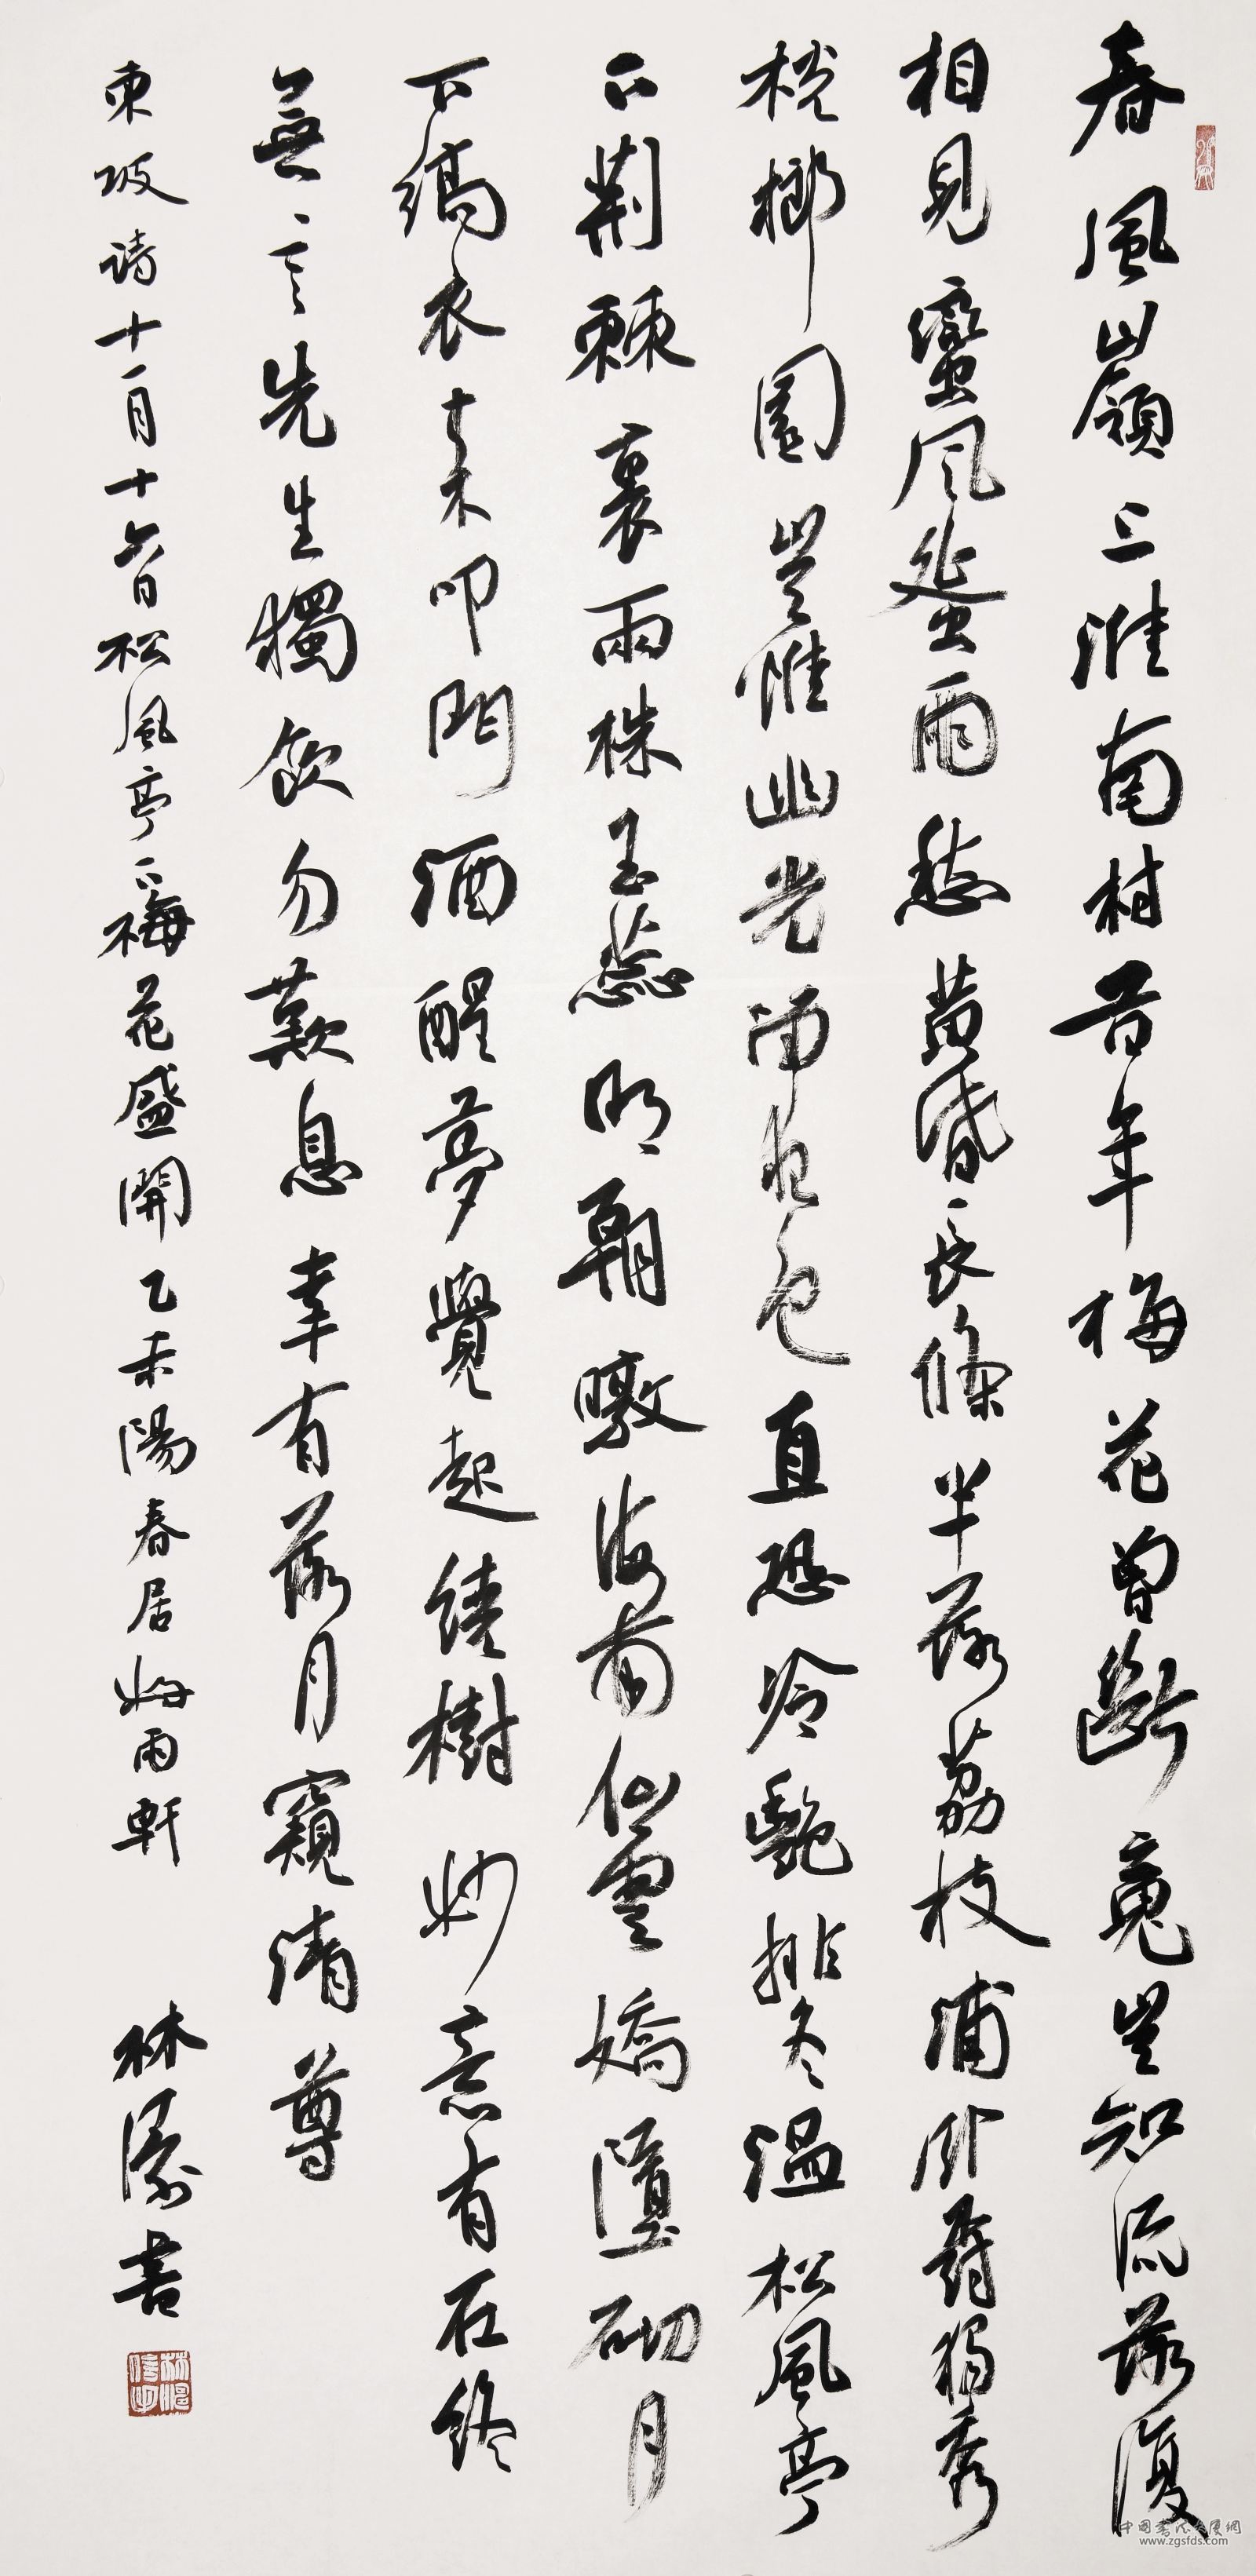 春風嶺上淮南村昔年梅花曾斷魂豈知流落復
相見蠻風蜑雨愁黃昏長條半落荔枝浦卧樹獨秀
桄榔園豈惟幽光留夜色直恐冷艷排冬溫松風亭
下荆棘裏兩株玉蕊明朝暾海南仙雲嬌墮砌月
下縞衣來叩門酒醒夢覺起繞樹妙意有在終
無言先生獨飲勿歎息幸有落月窺清尊
東坡詩十一月十六日松風亭下梅花盛開乙未陽春居雨軒 林書
中國書法大廈網
www.zgsfds.com